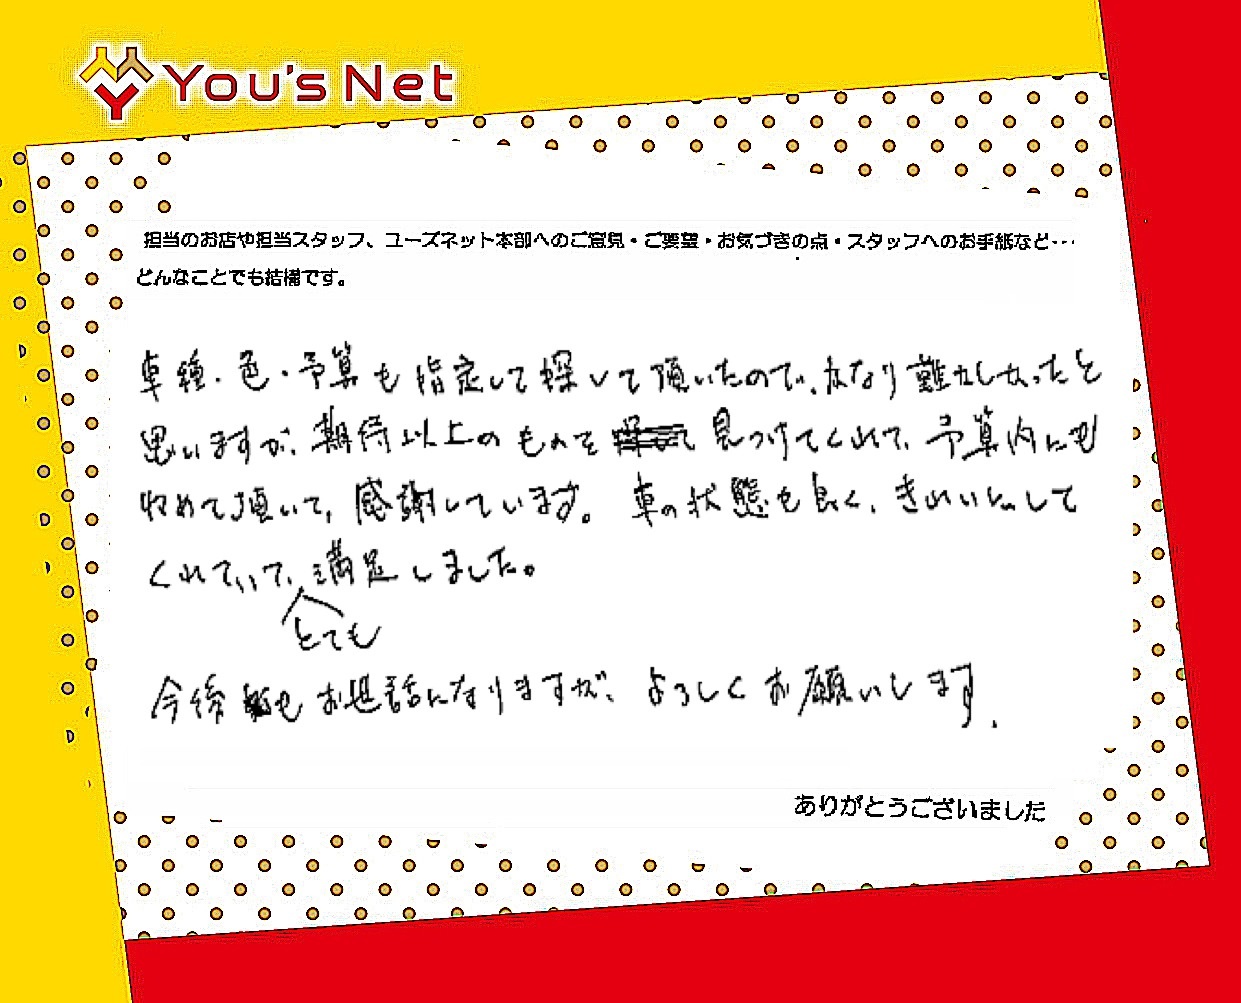 You's Net
担当のお店や担当スタッフ、ユーズネット本部へのご意見・ご要望・お気づきの点・スタッフへのお手紙など…
どんなことでも結構です。
車種・色・予算も指定して探して頂いたので、かなり難かしかったと
思いますが、期待以上のものを 見つけてくれて、予算内にも
収めて頂いて、感謝しています。車の状態も良く、きれいにして
くれていて、満足しました。
とても
今後 も お世話になりますが、よろしくお願いします.
ありがとうございました